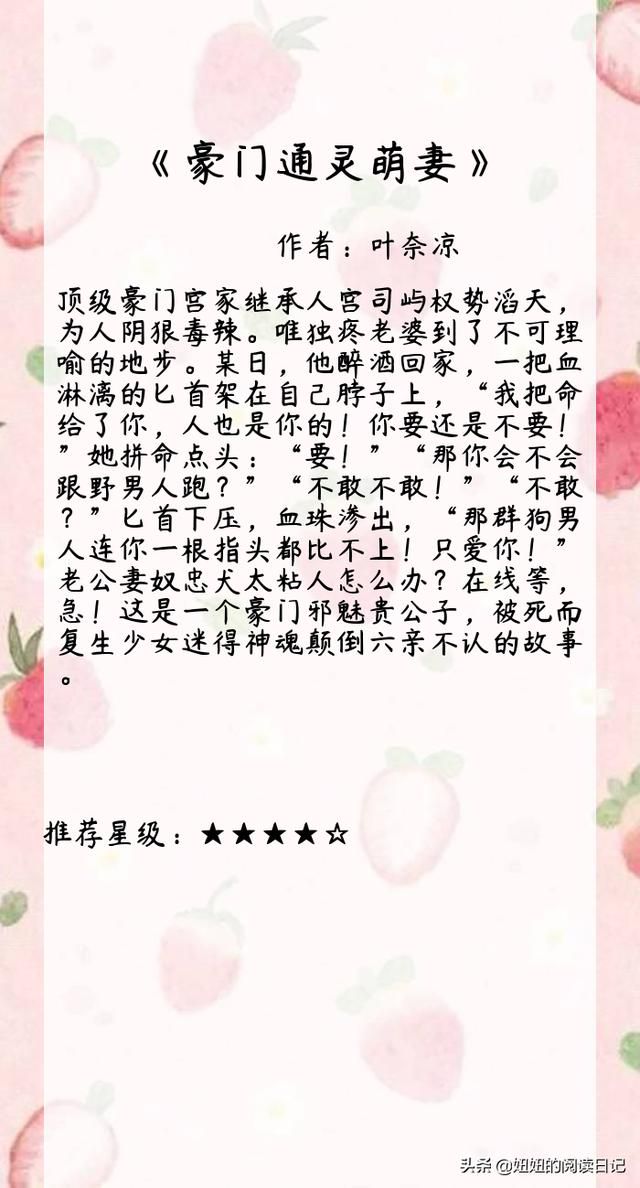 《豪门通灵萌妻》
作者：叶奈凉
顶级豪门宫家继承人宫司屿权势滔天，
为人阴狠毒辣。唯独疼老婆到了不可理
喻的地步。某日，他醉酒回家，一把血
淋漓的匕首架在自己脖子上，“我把命
给了你，人也是你的！你要还是不要！
”她拼命点头：“要！”“那你会不会
跟野男人跑？”“不敢不敢！”“不敢
？”匕首下压，血珠渗出，“那群狗男
人连你一根指头都比不上！只爱你！”
老公妻奴忠犬太粘人怎么办？在线等，
急！这是一个豪门邪魅贵公子，被死而
复生少女迷得神魂颠倒六亲不认的故事
。
推荐星级：★★★★☆
头条 @妞妞的阅读日记